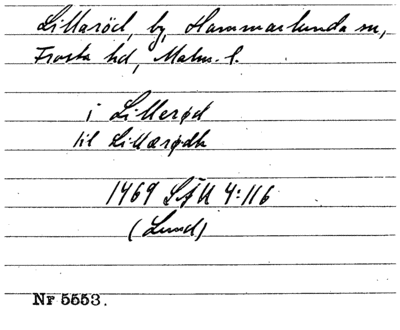 Lillaröd, by, Hammarlunda sn,
Frosta hd, Malm. l.
i Lillerød
til Lillærødh
1469 SÄU 4:116
(Lund)
Nr 5553.